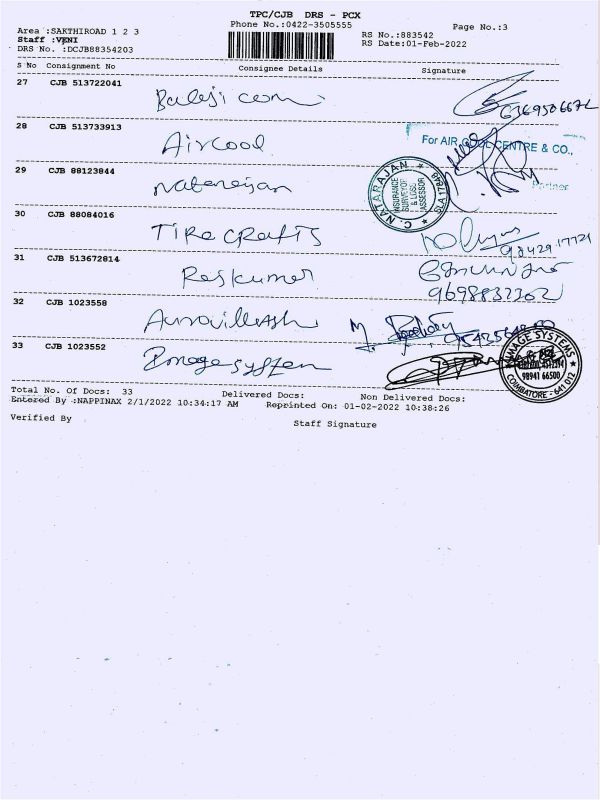 TPC/CJB DRS - PCX
Phone No.:0422-3505555
Page No.:3
Area :SAKTHIROAD 1 2 3
Staff :VENI
DRS No. :DCJB88354203
RS No.:883542
RS Date:01-Feb-2022
S No Consignment No Consignee Details Signature
27 CJB 513722041 Balaji com
28 CJB 513733913 Aircool For AIR COOL CENTRE & CO.,
Partner
29 CJB 88123844 Natarajan
C. NATARAJAN
INSURANCE
SURVEYOR
& LOSS
ASSESSOR
30 CJB 88084016 TIRE CRAFTS
31 CJB 513672814 Raj kumar 9698832302
32 CJB 1023558
33 CJB 1023552 Image system
IMAGE SYSTEMS
98941 66500
COIMBATORE - 641 012
Total No. Of Docs: 33 Delivered Docs: Non Delivered Docs:
Entered By :NAPPINAX 2/1/2022 10:34:17 AM Reprinted On: 01-02-2022 10:38:26
Verified By
Staff Signature